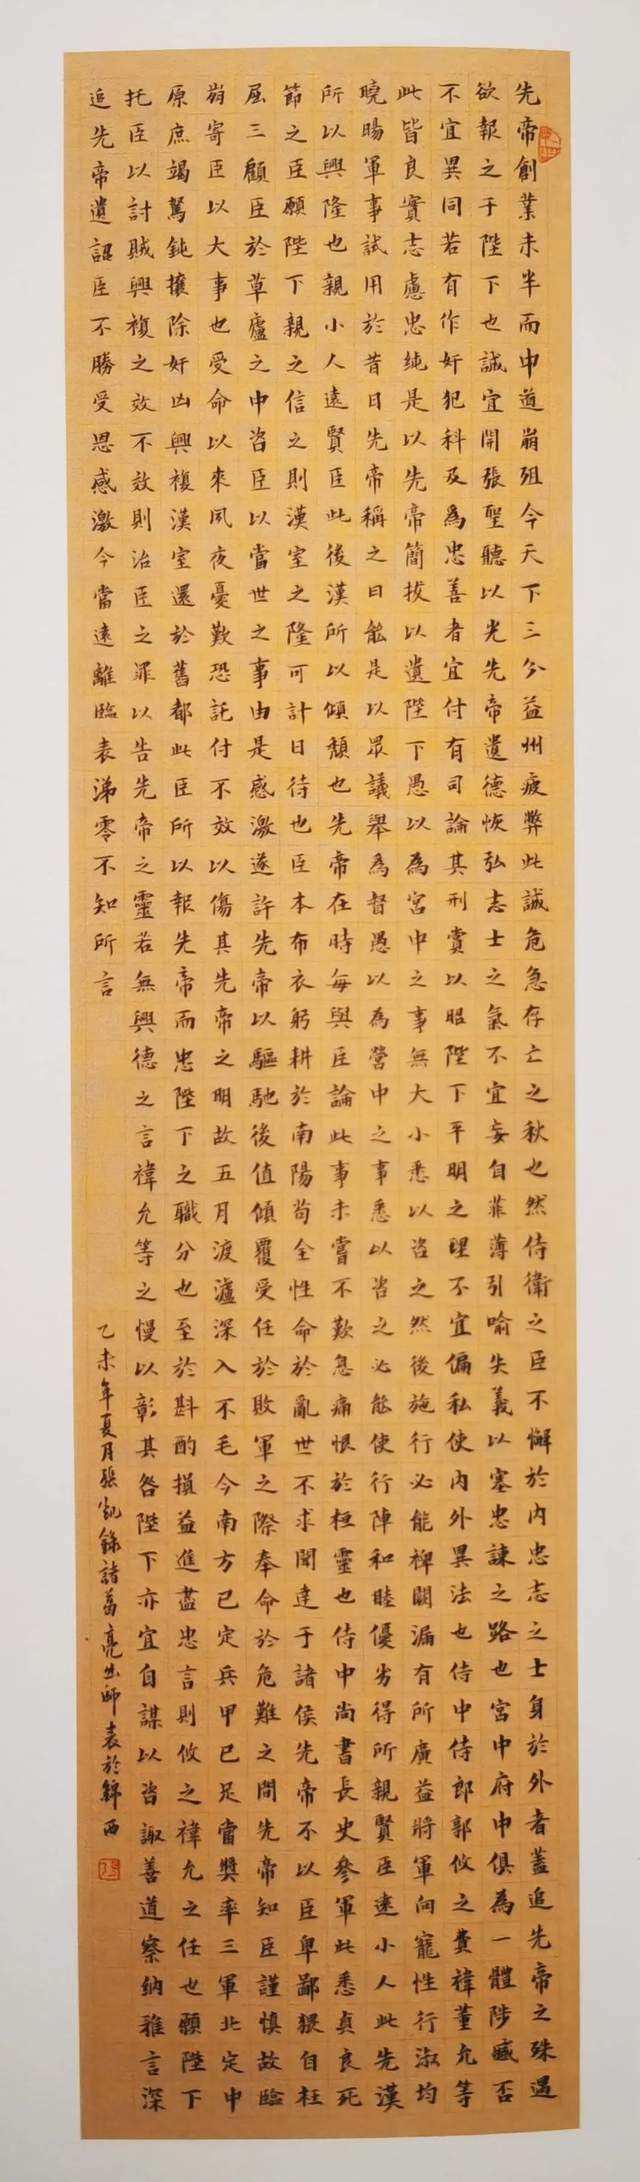 先帝創業未半而中道崩殂今天下三分益州疲弊此誠危急存亡之秋也然侍衛之臣不懈於內忠志之士身於外者蓋追先帝之殊遇
欲報之于陛下也誠宜開張聖聽以光先帝遺德恢弘志士之氣不宜妄自菲薄引喻失義以塞忠諫之路也宮中府中俱為一體陟臧否
不宜異同若有作奸犯科及為忠善者宜付有司論其刑賞以昭陛下平明之理不宜偏私使內外異法也侍中侍郎郭攸之費禕董允等
此皆良實志慮忠純是以先帝簡拔以遺陛下愚以為宮中之事無大小悉以咨之然後施行必能裨闕漏有所廣益將軍向寵性行淑均
曉暘軍事試用於昔日先帝稱之曰能是以眾議舉為督愚以為營中之事悉以咨之必能使行陣和睦優劣得所親賢臣遠小人此先漢
所以興隆也親小人遠賢臣此後漢所以傾頹也先帝在時每與臣論此事未嘗不歎息痛恨於桓靈也侍中尚書長史參軍此悉貞良死
節之臣願陛下親之信之則漢室之隆可計日待也臣本布衣躬耕於南陽苟全性命於亂世不求聞達于諸侯先帝不以臣卑鄙猥自枉
屈三顧臣於草廬之中咨臣以當世之事由是感激遂許先帝以驅馳後值傾覆受任於敗軍之際奉命於危難之間先帝知臣謹慎故臨
崩寄臣以大事也受命以來夙夜憂歎恐託付不效以傷其先帝之明故五月渡瀘深入不毛今南方已定兵甲已足當獎率三軍北定中
原庶竭駑鈍攘除奸凶興複漢室還於舊都此臣所以報先帝而忠陛下之職分也至於斟酌損益進盡忠言則攸之禕允之任也願陛下
托臣以討賊興複之效不效則治臣之罪以告先帝之靈若無興德之言禕允等之慢以彰其咎陛下亦宜自謀以咨諏善道察納雅言深
追先帝遺詔臣不勝受恩感激今當遠離臨表涕零不知所言
乙未年夏月張凱錄諸葛亮出師表於西